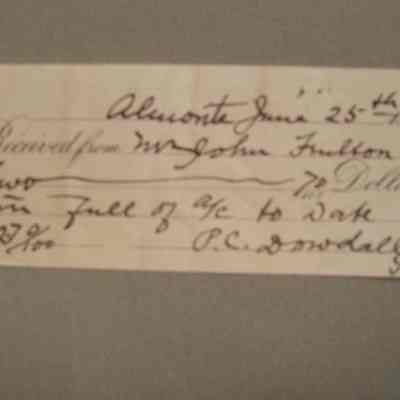 Almonte June 25th
Received from Mr John Fulton
Two 70 Dolla
in full of a/c to Date
P.C. Dowdall